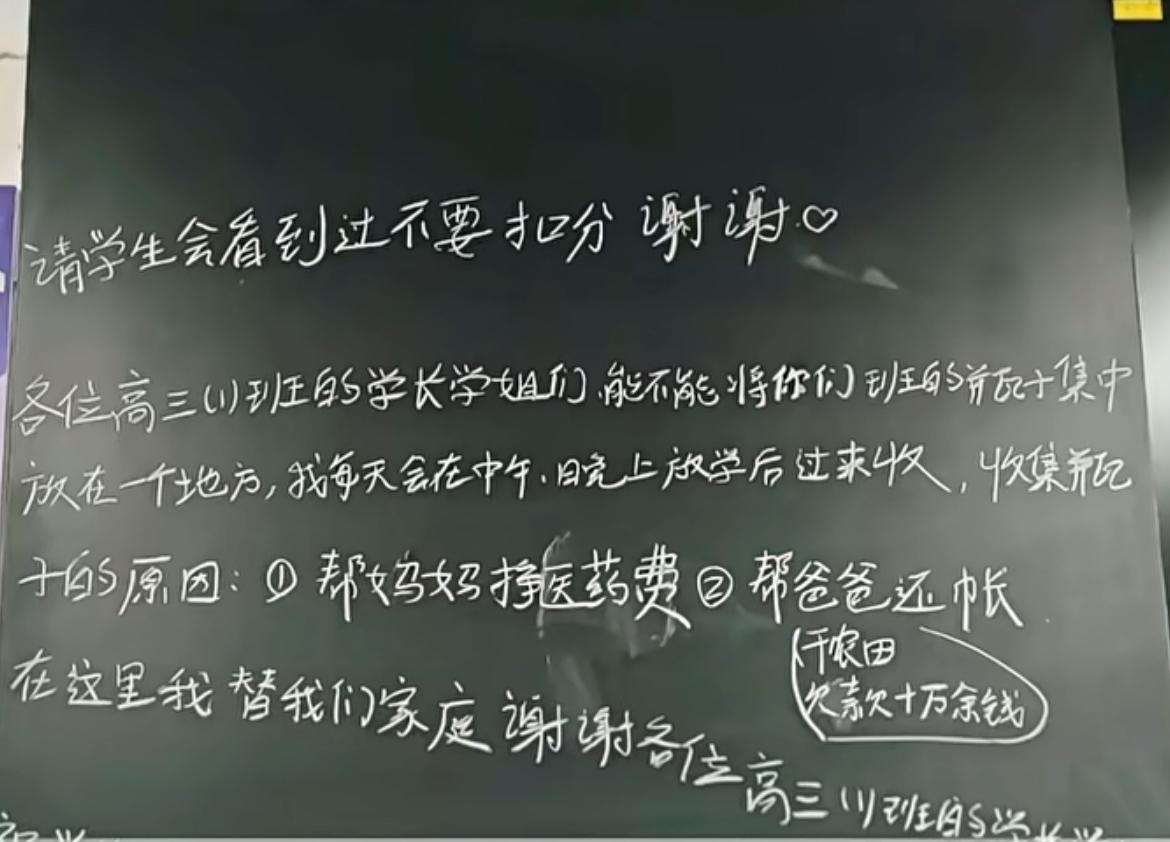 请学生会看到过不要扣分 谢谢♡
各位高三(1)班的学长学姐们,能不能将你们班的并瓦子集中
放在一个地方,我每天会在中午、晚上放学后过来收,收集并瓦
子的原因:① 帮妈妈挣医药费 ② 帮爸爸还帐
(干农田
欠款十万余钱)
在这里我替我们家庭谢谢各位高三(1)班的学长学